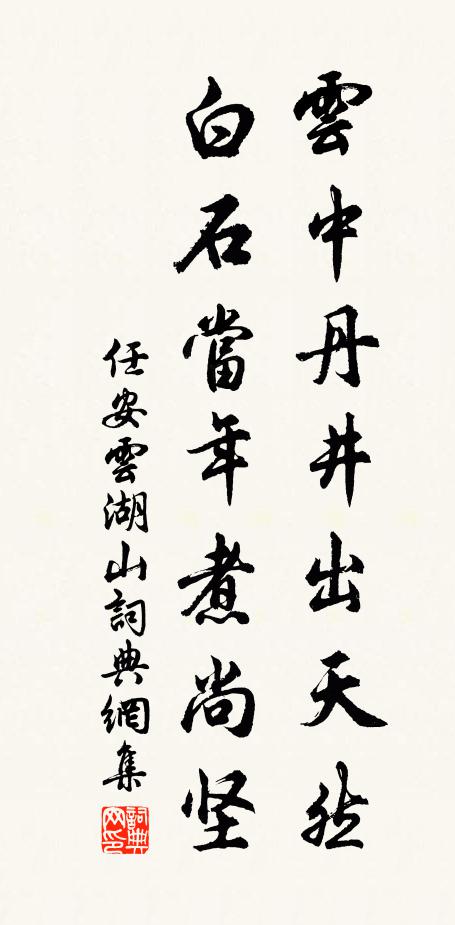 雲中丹井出天然
白石當年煮尚坚
任安雲湖山詞典網集
詞典網印